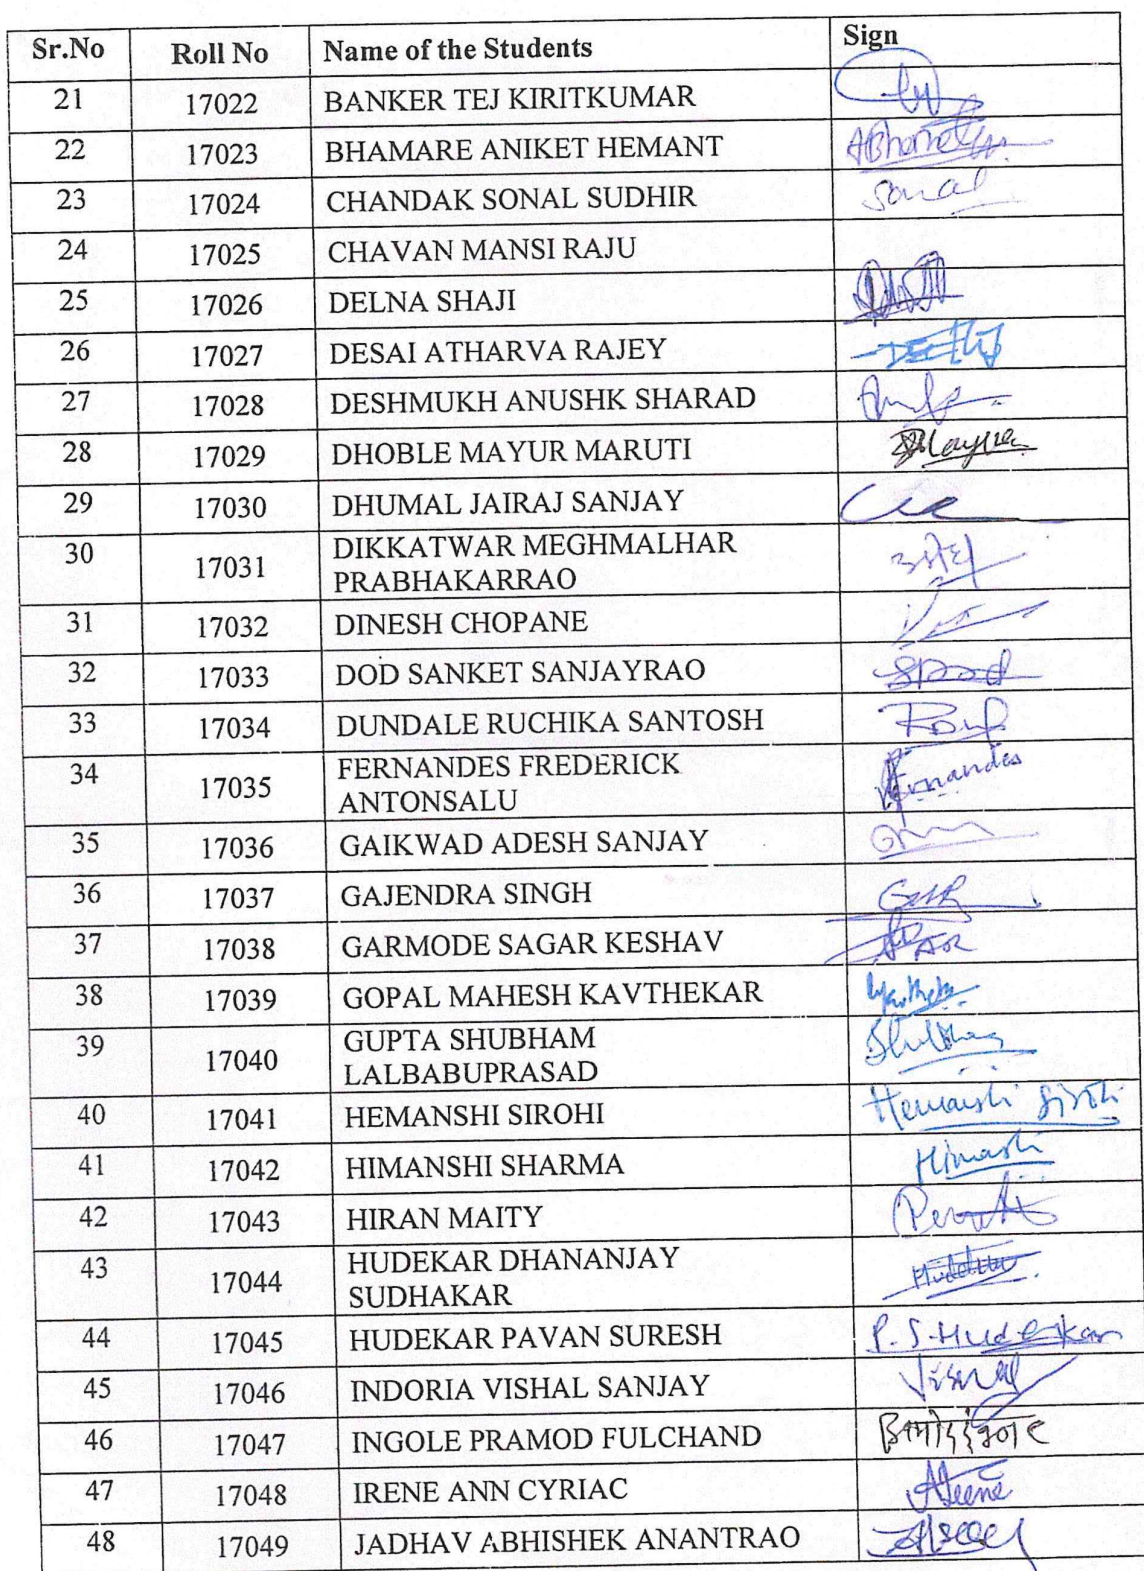 Sr.No Roll No Name of the Students Sign
21 17022 BANKER TEJ KIRITKUMAR
22 17023 BHAMARE ANIKET HEMANT
23 17024 CHANDAK SONAL SUDHIR Sonal
24 17025 CHAVAN MANSI RAJU
25 17026 DELNA SHAJI
26 17027 DESAI ATHARVA RAJEY
27 17028 DESHMUKH ANUSHK SHARAD
28 17029 DHOBLE MAYUR MARUTI
29 17030 DHUMAL JAIRAJ SANJAY
30 17031 DIKKATWAR MEGHMALHAR
PRABHAKARRAO
31 17032 DINESH CHOPANE
32 17033 DOD SANKET SANJAYRAO
33 17034 DUNDALE RUCHIKA SANTOSH
34 17035 FERNANDES FREDERICK
ANTONSALU Fernandes
35 17036 GAIKWAD ADESH SANJAY
36 17037 GAJENDRA SINGH
37 17038 GARMODE SAGAR KESHAV
38 17039 GOPAL MAHESH KAVTHEKAR
39 17040 GUPTA SHUBHAM
LALBABUPRASAD
40 17041 HEMANSHI SIROHI Hemanshi Sirohi
41 17042 HIMANSHI SHARMA
42 17043 HIRAN MAITY
43 17044 HUDEKAR DHANANJAY
SUDHAKAR
44 17045 HUDEKAR PAVAN SURESH P.S.Hudekar
45 17046 INDORIA VISHAL SANJAY Vishal
46 17047 INGOLE PRAMOD FULCHAND
47 17048 IRENE ANN CYRIAC
48 17049 JADHAV ABHISHEK ANANTRAO